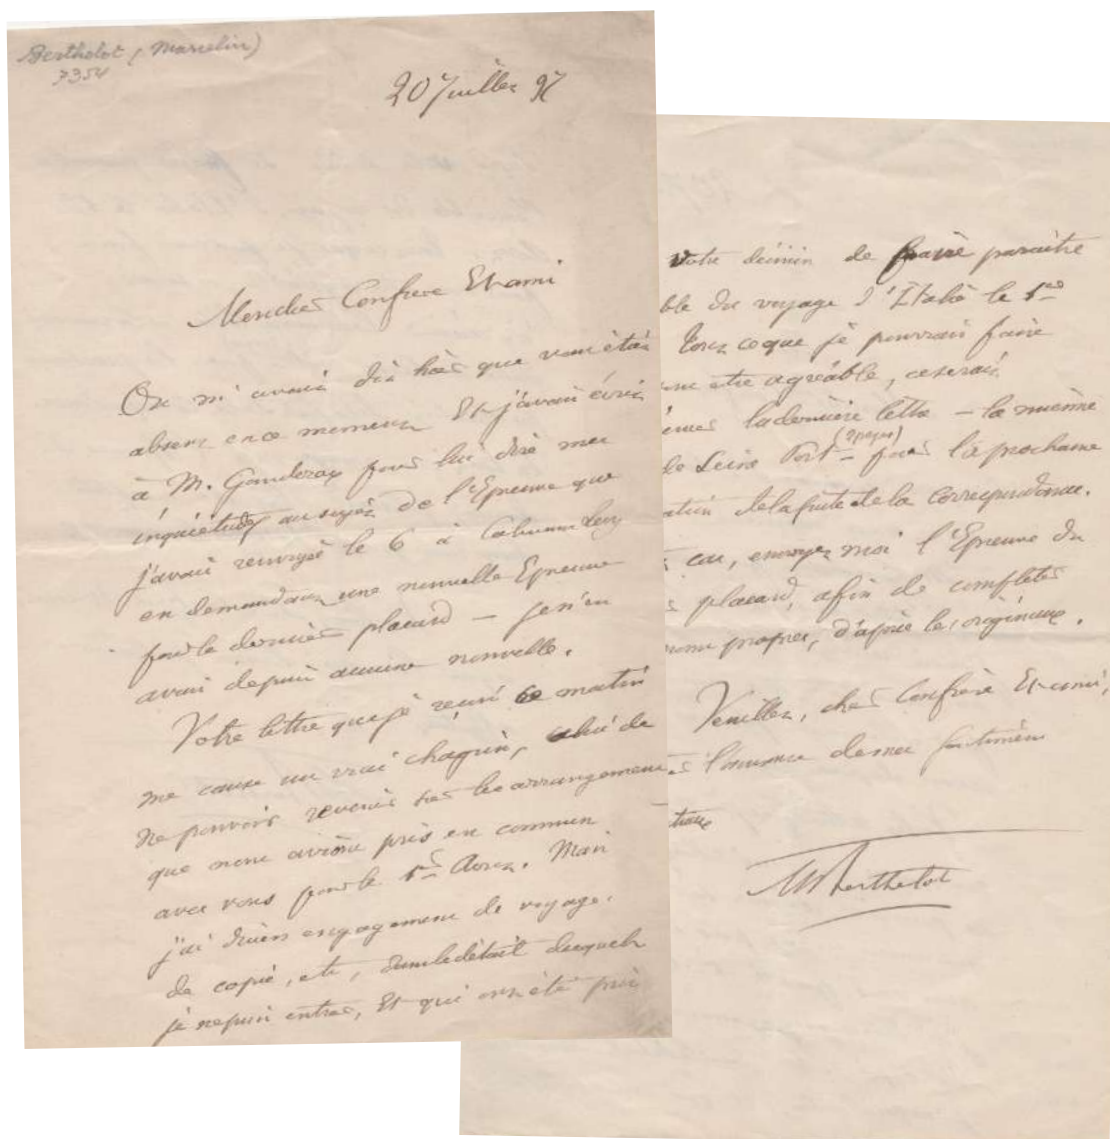 Berthelot (Marcelin)
7354
20 Juillet 97
Mon cher Confrère Et ami
On m'avait dit hier que vous étiez
absent en ce moment Et j'avais écrit
à M. Ganderax pour lui dire mes
inquiétudes au sujet de l'Epreuve que
j'avais renvoyé le 6 à Calmann Levy
en demandant une nouvelle Epreuve
pour le dernier placard — je n'en
avais depuis aucune nouvelle.
Votre lettre que je reçois ce matin
me cause un vrai chagrin, celui de
ne pouvoir revenir sur les arrangements
que nous avions pris en commun
avec vous pour le 1er Aout. Mais
j'ai divers engagements de voyage,
de copie, etc, dans le détail desquels
je ne puis entrer, Et qui ont été pris
votre dessein de faire paraitre
ble du voyage d'Italie le 1er
Tout ce que je pourrais faire
être agréable, ce serait
la dernière lettre — la mienne
de Seine Port — pour la prochaine
(2 pages)
de la suite de la correspondance.
cas, envoyez moi l'Epreuve du
placard, afin de compléter
noms propres, d'après les originaux.
Veuillez, cher Confrère Et ami,
l'assurance de mes sentiments
M Berthelot